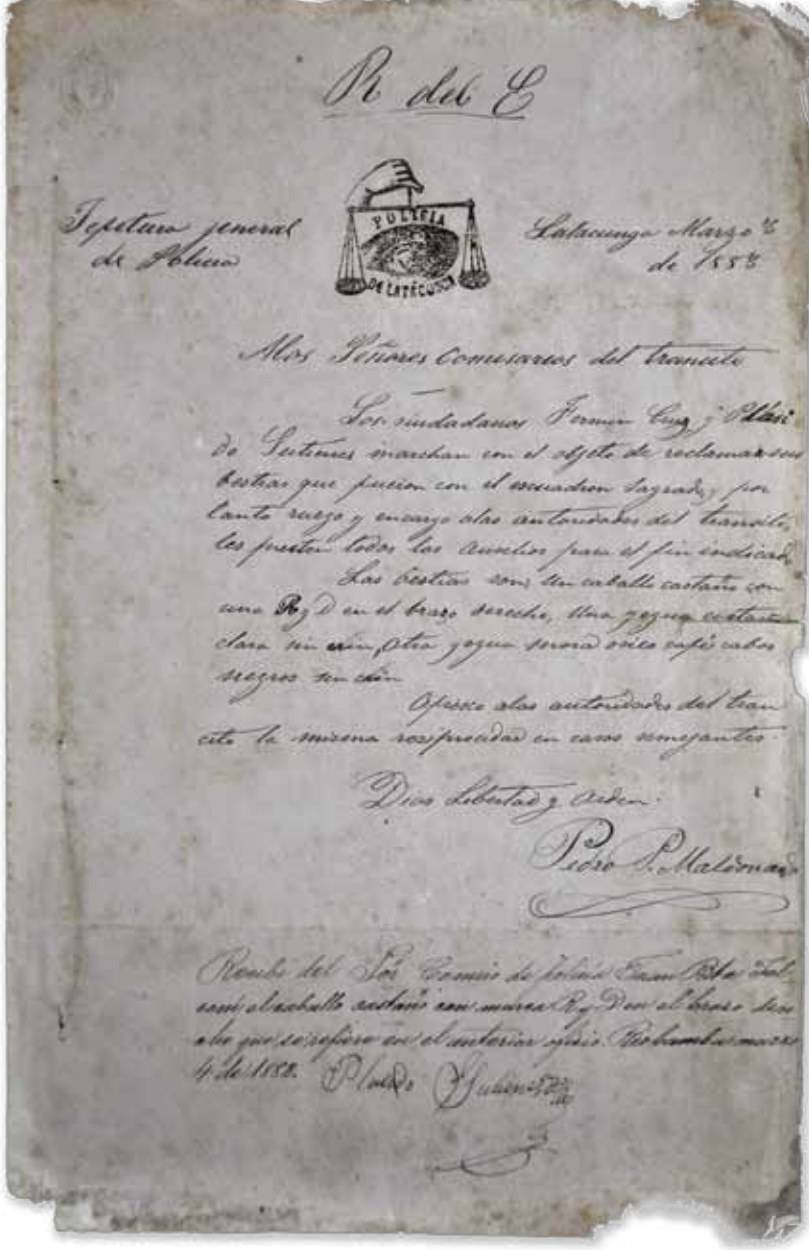 R del E
POLICIA
DE LATACUNGA
Jefetura jeneral
de Policia
Latacunga Marzo
de 1883
Alos Señores Comisarios del transito
Los ciudadanos Fermin Cruz y Plasi
do Gutierres marchan con el objeto de reclamar sus
bestias que fueron con el escuadron Sagrado, por
tanto ruego y encargo alas autoridades del transito,
les presten todos los auxilios para el fin indicado
Las bestias son, Un caballo castaño con
una R y D en el brazo derecho, Una yegua castaña
clara sin crin, Otra yegua mora osico café cabos
negros sin crin
Ofresco alas autoridades del tran
cito la misma resiprocidad en casos semejantes
Dios Libertad y Orden.
Pedro P. Maldonado
Recibi del Sor Comiso de policia Juan Bta
el caballo castaño con marca R y D en el brazo dere
cho que se refiere en el anterior oficio. Riobamba marzo
4 de 1883. Placido Gutierres